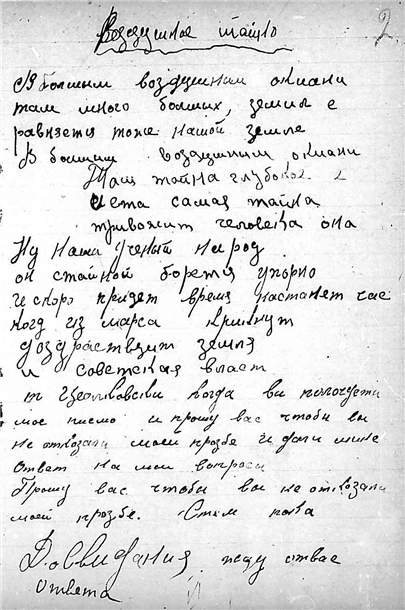 Воздушное тайно
2
В болшим воздушним окиани
там много болших, земил е
равняетя тоже нашой земле
В болшим воздушним окиани
Таш тайна глубокое 2
и ета самая тайна
тривожит человека она
Ну наша ученый народ
он стайной боретя упорно
и скоро придет время настанет час
когд из марса крикнут
уоздраствищт земля
и советская власт
т Циолковски когда ви полочдети
мое писмо и прошу вас чтобы ви
не отказали моей прозбе и дали мине
ответ на мои вопроси
Прошу вас чтобы ви не отказали
моей прозбе. Стем пока
Досвидания, жду отвас
ответа